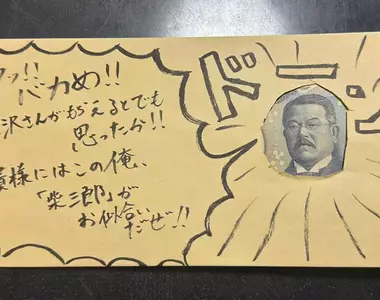 ッ!!
バカめ!!
沢さんがもらえるとでも
思ったか!!
様にはこの俺、
「柴三郎」が
お似合い
だぜ!!
ドー